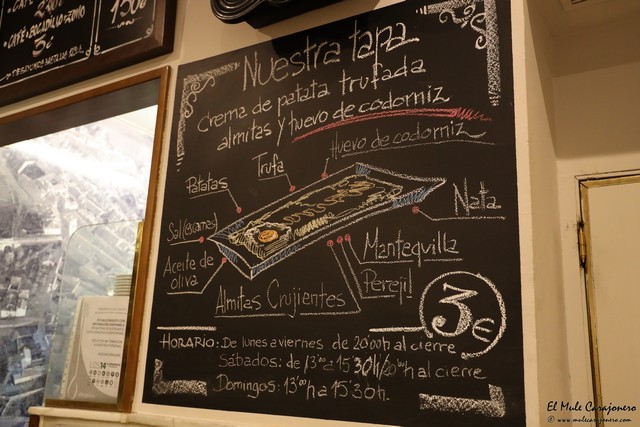 CAFÉ
CAFÉ + BOCADILLO + ZUMO
3€
150€
Nuestra tapa
Crema de patata trufada
almitas y huevo de codorniz
Huevo de codorniz
Trufa
Patatas
Nata
Sal (escamas)
Aceite de
oliva
Mantequilla
Perejil
Almitas Crujientes
3€
HORARIO: De lunes a viernes de 20:00h al cierre
Sábados: de 13:00 a 15:30h/20:00h al cierre
Domingos: 13:00h a 15:30h.
El Mule Carajonero
© www.mulecarajonero.com